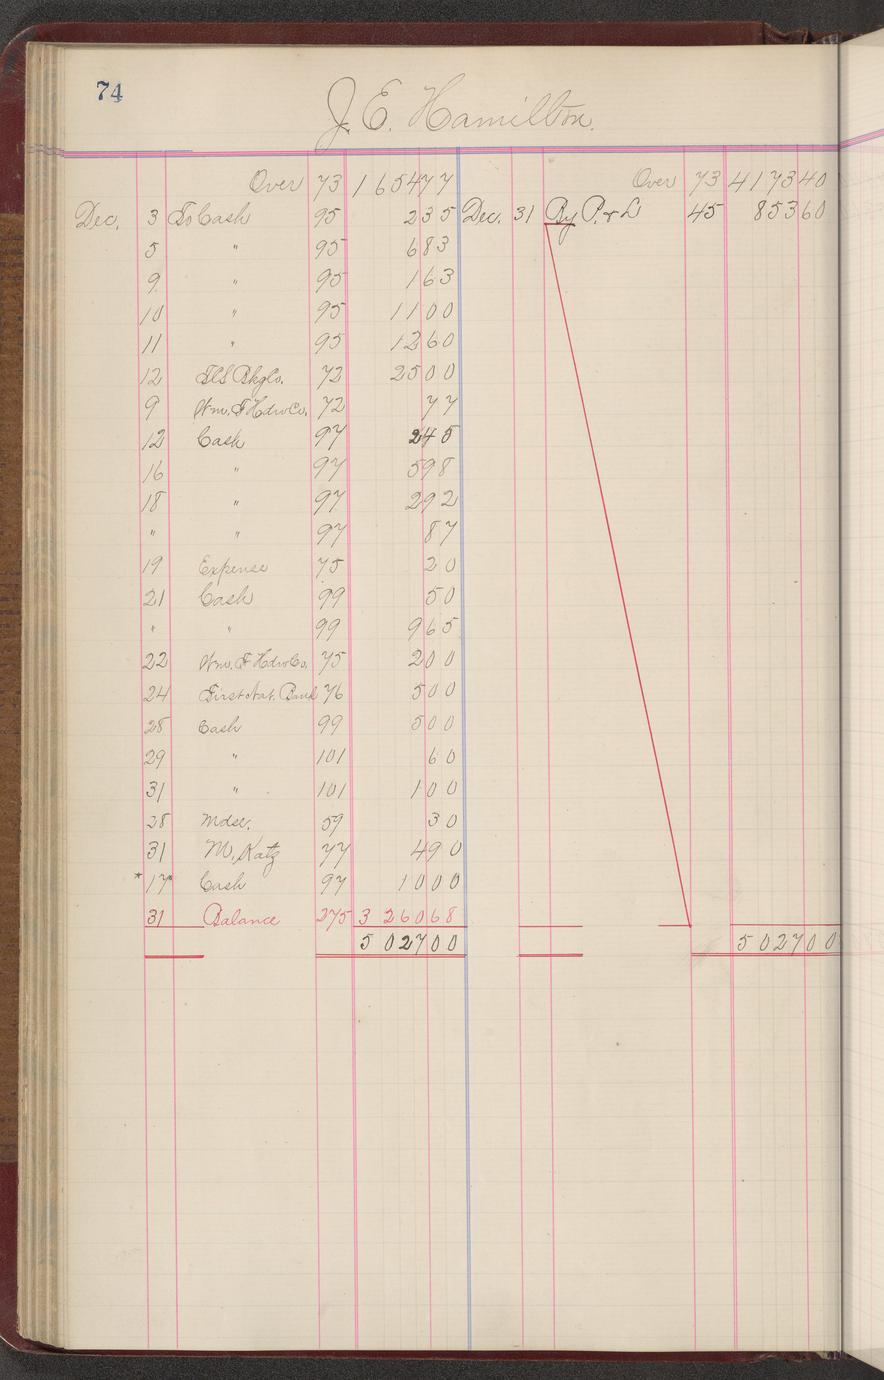 74
J. E. Hamilton.
Over 73 1 654 77 Over 73 4173 40
Dec. 3 To Cash 95 2 35 Dec. 31 By P. & L 45 853 60
5 " 95 6 83
9 " 95 1 63
10 " 95 11 00
11 " 95 12 60
12 72 25 00
9 Wm. F. Hdw Co. 72 77
12 Cash 97 2 45
16 " 97 5 98
18 " 97 2 92
" " 97 87
19 Expense 75 20
21 Cash 99 50
" " 99 9 65
22 Wm. F. Hdw Co. 75 2 00
24 First Nat. Bank 76 5 00
28 Cash 99 5 00
29 " 101 60
31 " 101 1 00
28 Mdse. 59 30
31 M. Katz 77 4 90
* 17 * Cash 97 10 00
31 Balance 275 3 260 68
5 027 00 5 027 00